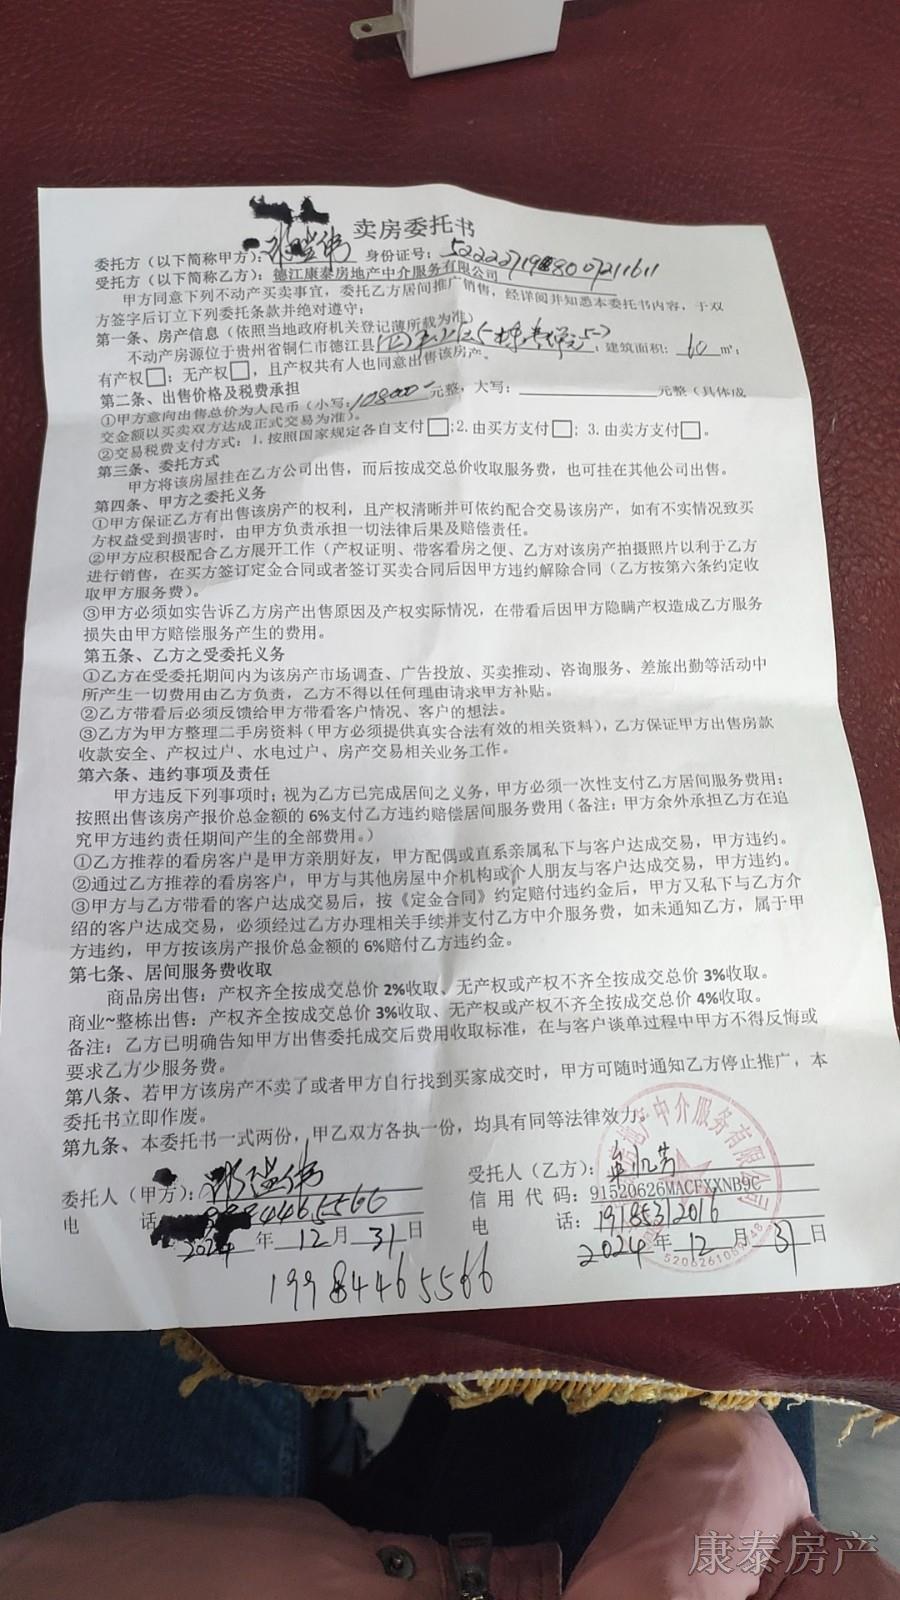 卖房委托书
委托方（以下简称甲方）： 身份证号：
受托方（以下简称乙方）：德江康泰房地产中介服务有限公司
甲方同意下列不动产买卖事宜，委托乙方居间推广销售，经详阅并知悉本委托书内容，于双
方签字后订立下列委托条款并绝对遵守：
第一条、房产信息（依照当地政府机关登记薄所载为准）
不动产房源位于贵州省铜仁市德江县 ；建筑面积：60㎡；
有产权□；无产权□，且产权共有人也同意出售该房产。
第二条、出售价格及税费承担
①甲方意向出售总价为人民币（小写：108000 元整，大写： 元整（具体成
交金额以买卖双方达成正式交易为准）。
②交易税费支付方式：1.按照国家规定各自支付□；2.由买方支付□；3.由卖方支付□。
第三条、委托方式
甲方将该房屋挂在乙方公司出售，而后按成交总价收取服务费，也可挂在其他公司出售。
第四条、甲方之委托义务
①甲方保证乙方有出售该房产的权利，且产权清晰并可依约配合交易该房产，如有不实情况致买
方权益受到损害时，由甲方负责承担一切法律后果及赔偿责任。
②甲方应积极配合乙方展开工作（产权证明、带客看房之便、乙方对该房产拍摄照片以利于乙方
进行销售，在买方签订定金合同或者签订买卖合同后因甲方违约解除合同（乙方按第六条约定收
取甲方服务费）。
③甲方必须如实告诉乙方房产出售原因及产权实际情况，在带看后因甲方隐瞒产权造成乙方服务
损失由甲方赔偿服务产生的费用。
第五条、乙方之受委托义务
①乙方在受委托期间内为该房产市场调查、广告投放、买卖推动、咨询服务、差旅出勤等活动中
所产生一切费用由乙方负责，乙方不得以任何理由请求甲方补贴。
②乙方带看后必须反馈给甲方带看客户情况、客户的想法。
③乙方为甲方整理二手房资料（甲方必须提供真实合法有效的相关资料），乙方保证甲方出售房款
收款安全、产权过户、水电过户、房产交易相关业务工作。
第六条、违约事项及责任
甲方违反下列事项时；视为乙方已完成居间之义务，甲方必须一次性支付乙方居间服务费用；
按照出售该房产报价总金额的 6%支付乙方违约赔偿居间服务费用（备注：甲方余外承担乙方在追
究甲方违约责任期间产生的全部费用。）
①乙方推荐的看房客户是甲方亲朋好友，甲方配偶或直系亲属私下与客户达成交易，甲方违约。
②通过乙方推荐的看房客户，甲方与其他房屋中介机构或个人朋友与客户达成交易，甲方违约。
③甲方与乙方带看的客户达成交易后，按《定金合同》约定赔付违约金后，甲方又私下与乙方介
绍的客户达成交易，必须经过乙方办理相关手续并支付乙方中介服务费，如未通知乙方，属于甲
方违约，甲方按该房产报价总金额的 6%赔付乙方违约金。
第七条、居间服务费收取
商品房出售：产权齐全按成交总价 2%收取、无产权或产权不齐全按成交总价 3%收取。
商业~整栋出售：产权齐全按成交总价 3%收取、无产权或产权不齐全按成交总价 4%收取。
备注：乙方已明确告知甲方出售委托成交后费用收取标准，在与客户谈单过程中甲方不得反悔或
要求乙方少服务费。
第八条、若甲方该房产不卖了或者甲方自行找到买家成交时，甲方可随时通知乙方停止推广，本
委托书立即作废。
第九条、本委托书一式两份，甲乙双方各执一份，均具有同等法律效力。
委托人（甲方）：
电 话：
2024年12月31日
19984465566
受托人（乙方）：
信用代码：91520626MACFXXNB9C
电 话：19185312016
2024年12月31日
中介服务有限公司
康泰房产